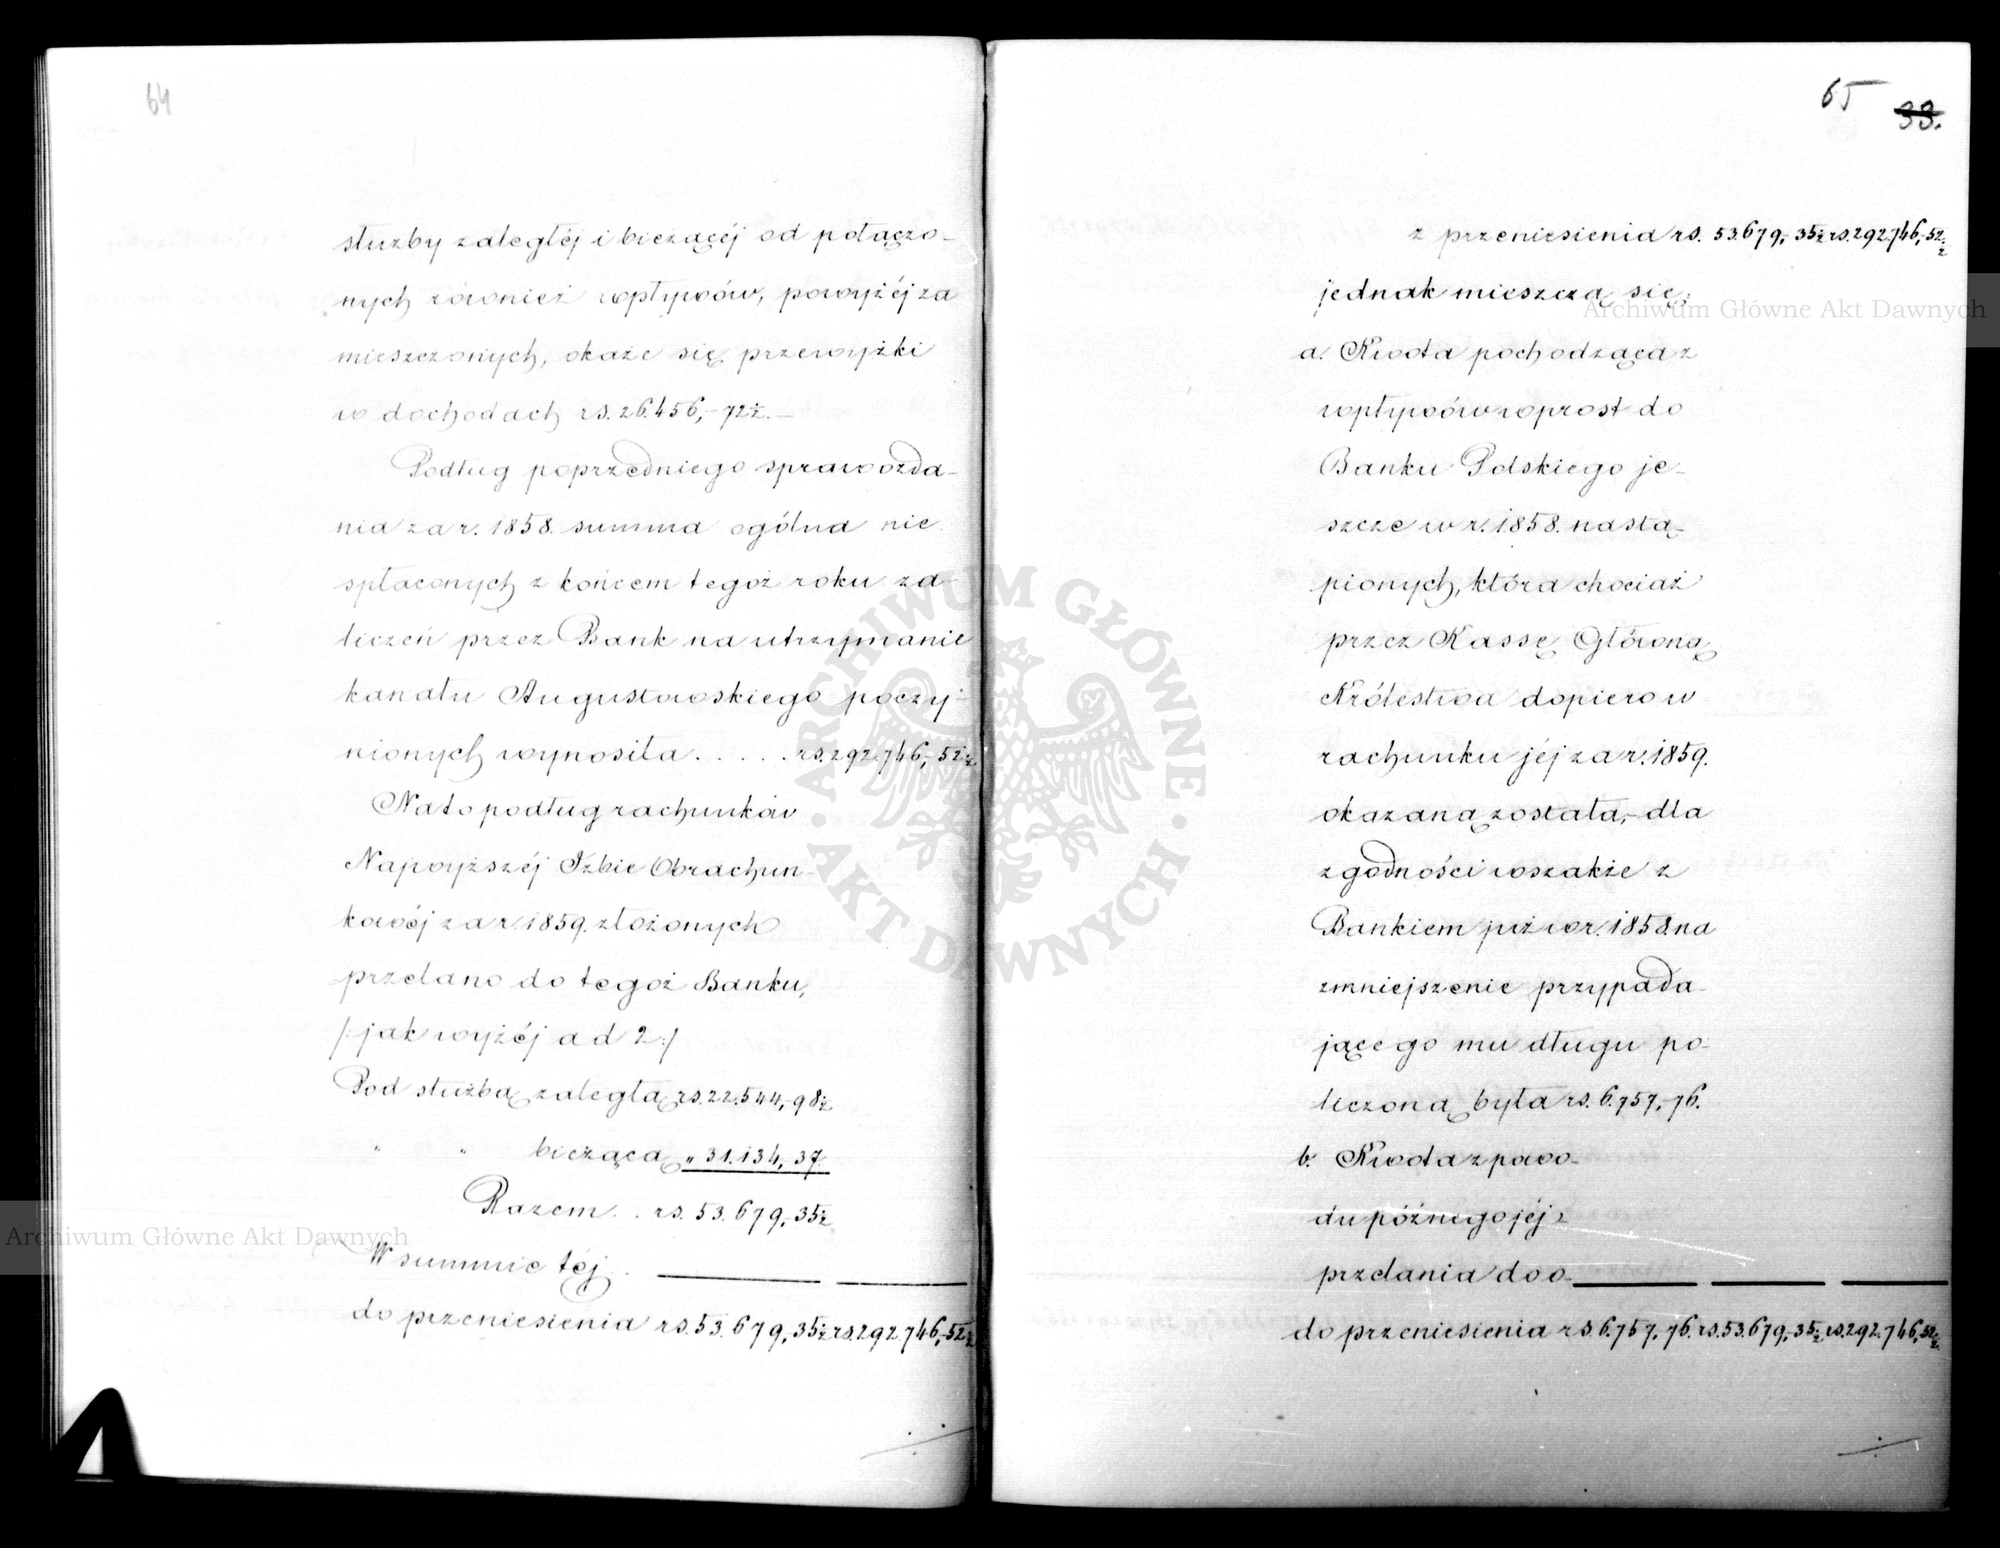 64
służby zaległéj i bieżącéj od połączo-
nych również wpływów, powyżéj za
mieszczonych, okaże się przewyżki
w dochodach rs. 26.456,- 72½.-
Podług poprzedniego sprawozda-
nia za r. 1858. summa ogólna nie
spłaconych z końcem tegoż roku za-
liczeń przez Bank na utrzymanie
kanału Augustowskiego poczy-
nionych wynosiła . . . . . rs. 292.746,- 52½
Na to podług rachunków
Najwyższéj Izbie Obrachun-
kowéj za r. 1859. złożonych
przelano do tegoż Banku,
/: jak wyżéj ad 2:/
Pod służbą zaległą rs. 22.544,- 98½
" " bieżącą " 31.134, 37.
Razem . . rs. 53.679, 35½
W summie téj
do przeniesienia rs. 53.679, 35½ rs. 292.746,- 52½
65
33.
z przeniesienia rs. 53.679,- 35½ rs. 292.746,- 52½
jednak mieszczą się:
a. Kwota pochodząca z
wpływów wprost do
Banku Polskiego je-
szcze w r. 1858. nastą-
pionych, która chociaż
przez Kassę Główną
Królestwa dopiero w
rachunku jéj za r. 1859.
okazaną została,- dla
zgodności wszakże z
Bankiem już w r. 1858. na
zmniejszenie przypada-
jącego mu długu po-
liczoną była rs. 6.757,- 76.
b. Kwota z powo-
du późnego jéj
przelania do o-
do przeniesienia rs. 6.757, 76. rs. 53.679,- 35½ rs. 292.746, 52½
Archiwum Główne Akt Dawnych
Archiwum Główne Akt Dawnych
ARCHIWUM GŁÓWNE · AKT DAWNYCH ·